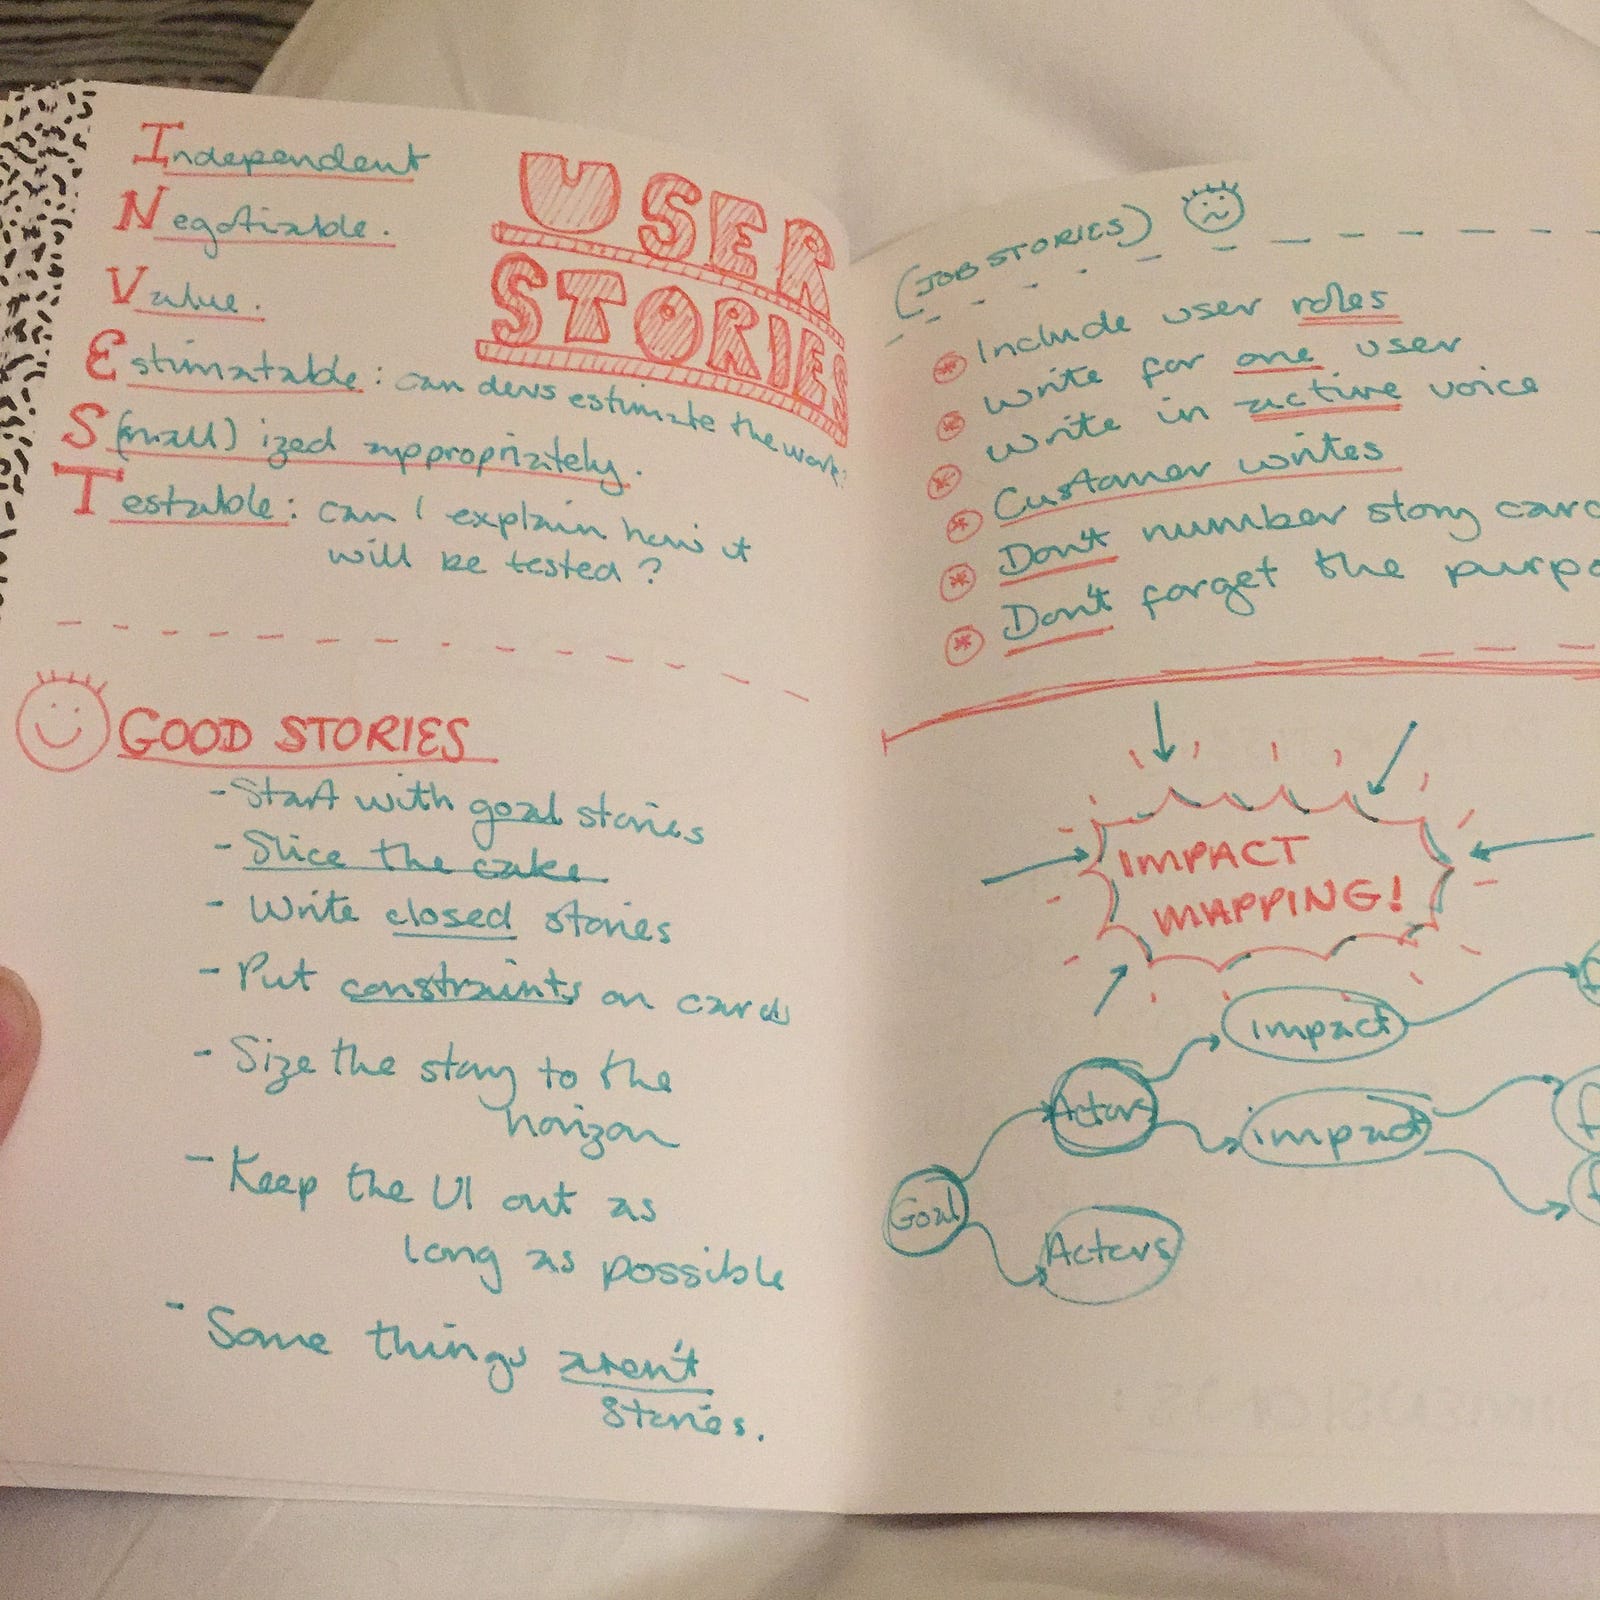 USER
STORIES
Independent
Negotiable.
Value.
Estimatable: can devs estimate the work?
S(mall) ized appropriately.
Testable: can I explain how it
will be tested?
GOOD STORIES
- Start with goal stories
- Slice the cake
- Write closed stories
- Put constraints on cards
- Size the story to the
horizon
- Keep the UI out as
long as possible
- Some things aren't
stories.
(JOB STORIES)
* Include user roles
* Write for one user
* Write in active voice
* Customer writes
* Don't number story card
* Don't forget the purpo
IMPACT
MAPPING!
impact
Actors
impact
Goal
Actors